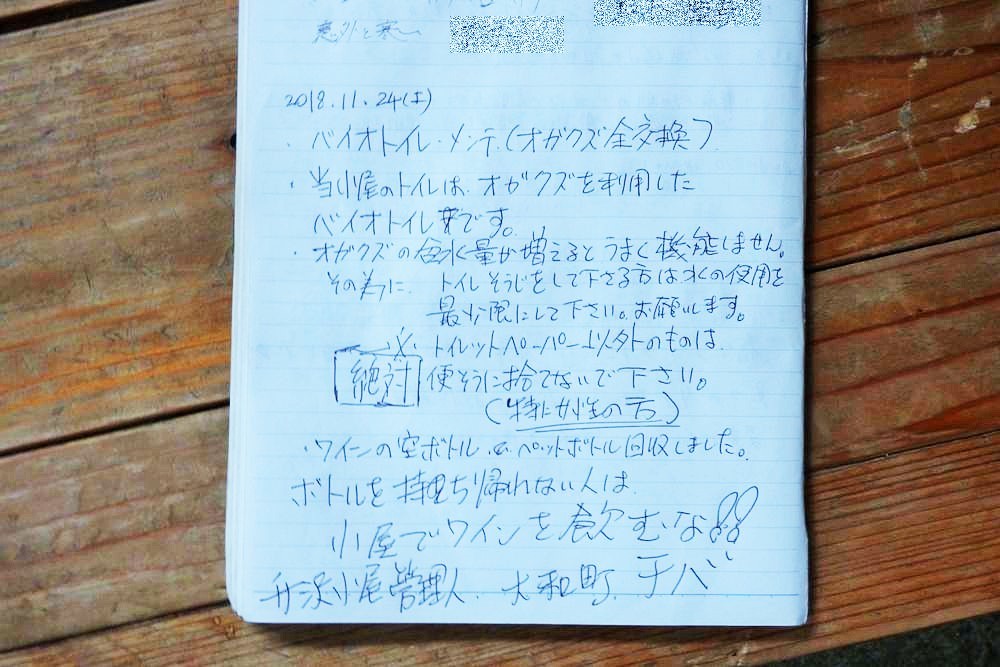 意外と寒い
2018.11.24(土)
・バイオトイレ・メンテ(オガクズ全交換)
・当小屋のトイレは、オガクズを利用した
バイオトイレです。
・オガクズの含水量が増えるとうまく機能しません。
その為に、トイレそうじをして下さる方は水の使用を
最少限にして下さい。お願いします。
※・トイレットペーパー以外のものは、
絶対 便そうに捨てないで下さい。
(特に女性の方)
・ワインの空ボトル、ペットボトル回収しました。
ボトルを持ち帰れない人は、
小屋でワインを飲むな!!
小屋管理人、大和町、千バ